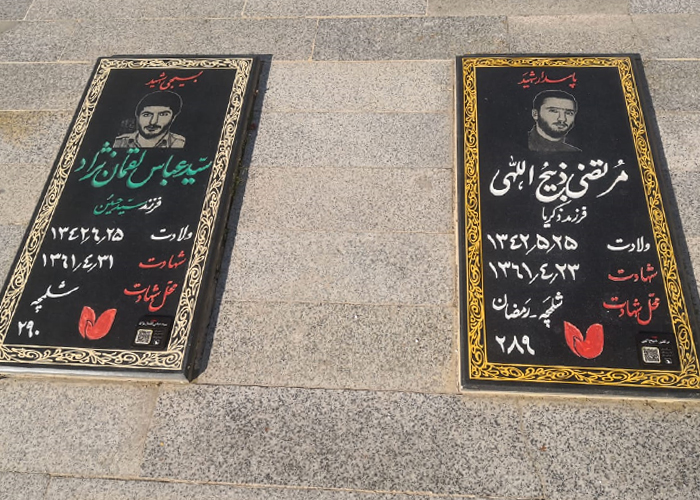 پاسدار شهید
مرتضی ذبیح اللهی
فرزند ذکریا
ولادت ۱۳۴۲٫۵٫۲۵
شهادت ۱۳۶۱٫۴٫۲۳
محل شهادت شلمچه - رمضان
۲۸۹
بسیجی شهید
سید عباس لقمان نژاد
فرزند سید حسین
ولادت ۱۳۴۲٫۶٫۲۵
شهادت ۱۳۶۱٫۴٫۳۱
محل شهادت شلمچه
۲۹۰